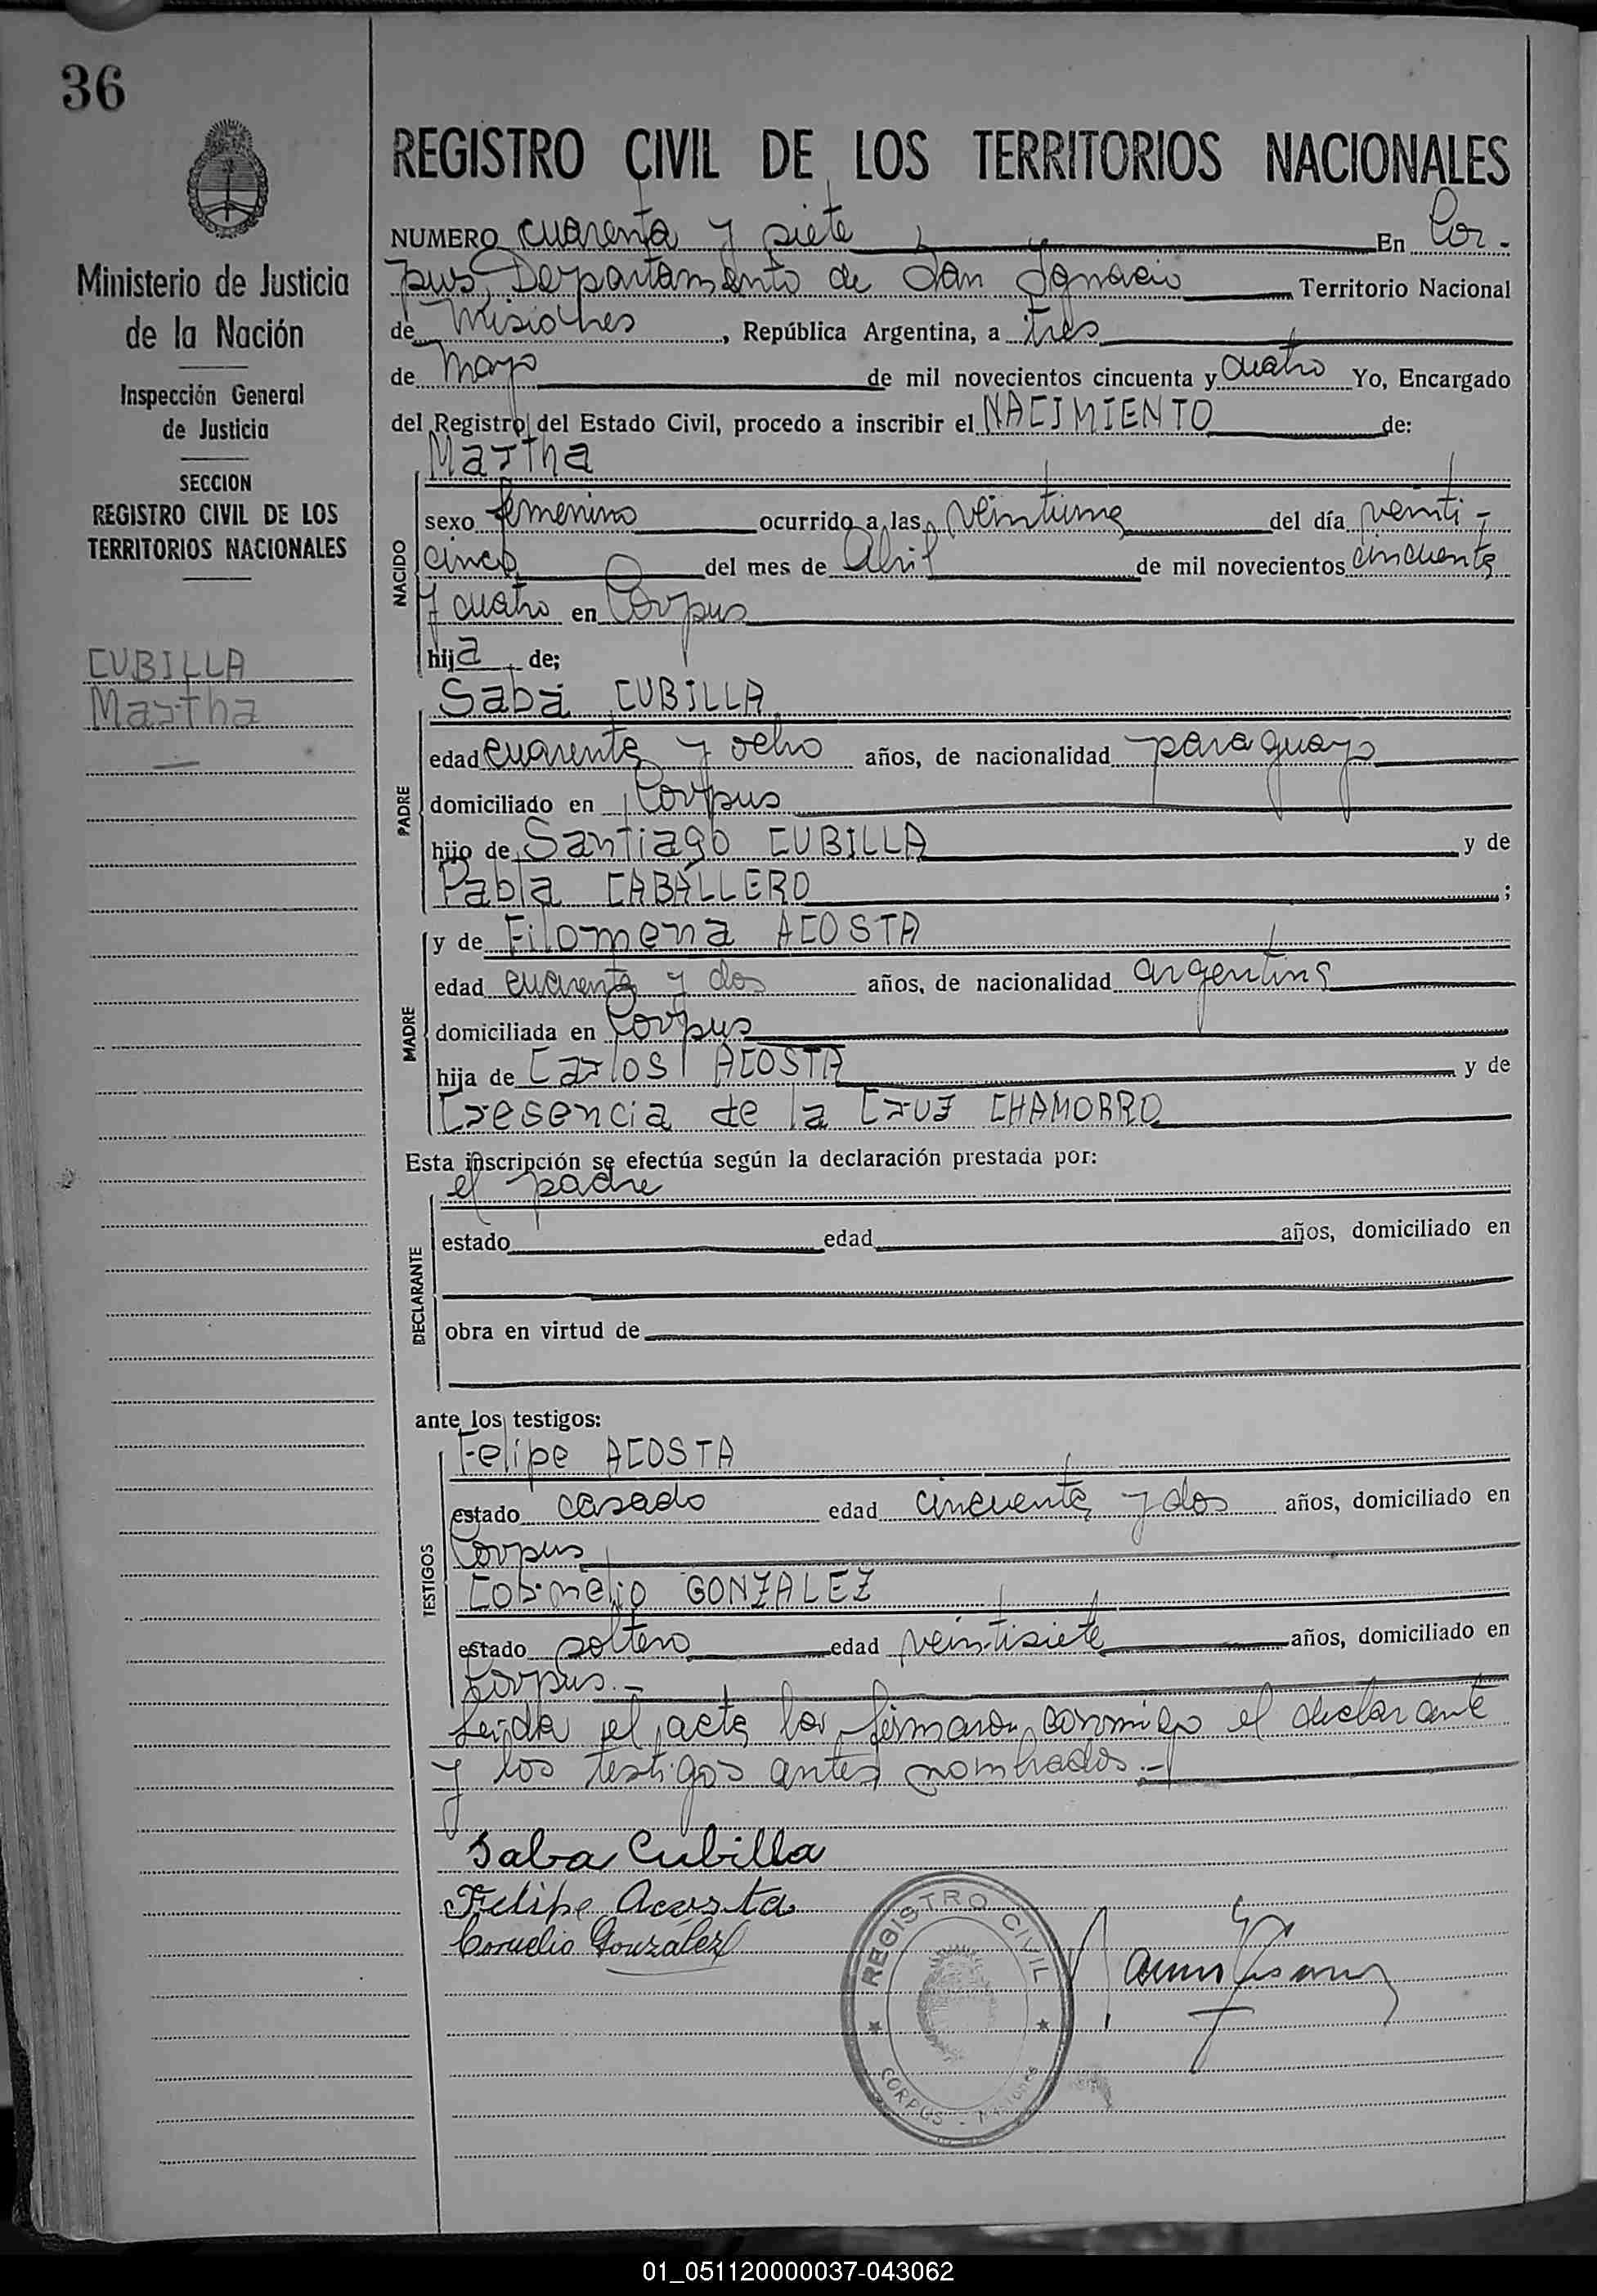 36
REGISTRO CIVIL DE LOS TERRITORIOS NACIONALES
Ministerio de Justicia
de la Nación
Inspección General
de Justicia
SECCION
REGISTRO CIVIL DE LOS
TERRITORIOS NACIONALES
CUBILLA
Martha
NUMERO cuarenta y siete En Cor-
pus, Departamento de San Ignacio Territorio Nacional
de Misiones, República Argentina, a tres
de Mayo de mil novecientos cincuenta y cuatro Yo, Encargado
del Registro del Estado Civil, procedo a inscribir el NACIMIENTO de:
Martha
NACIDO
sexo femenino ocurrido a las veintiuna del día veinti-
cinco del mes de Abril de mil novecientos cincuenta
y cuatro en Corpus
hija de;
PADRE
Saba CUBILLA
edad cuarenta y ocho años, de nacionalidad paraguayo
domiciliado en Corpus
hijo de Santiago CUBILLA y de
Pabla CABALLERO;
MADRE
y de Filomena ACOSTA
edad cuarenta y dos años, de nacionalidad argentina
domiciliada en Corpus
hija de Carlos ACOSTA y de
Cresencia de la Cruz CHAMORRO
Esta inscripción se efectúa según la declaración prestada por:
DECLARANTE
el padre
estado edad años, domiciliado en
obra en virtud de
ante los testigos:
TESTIGOS
Felipe ACOSTA
estado casado edad cincuenta y dos años, domiciliado en
Corpus
Cornelio GONZALEZ
estado soltero edad veintisiete años, domiciliado en
Corpus.-
Leida el acta la firmaron conmigo el declarante
y los testigos antes nombrados.-
Saba Cubilla
Felipe Acosta
Cornelio Gonzalez
REGISTRO CIVIL
CORPUS - Misiones
01_051120000037-043062